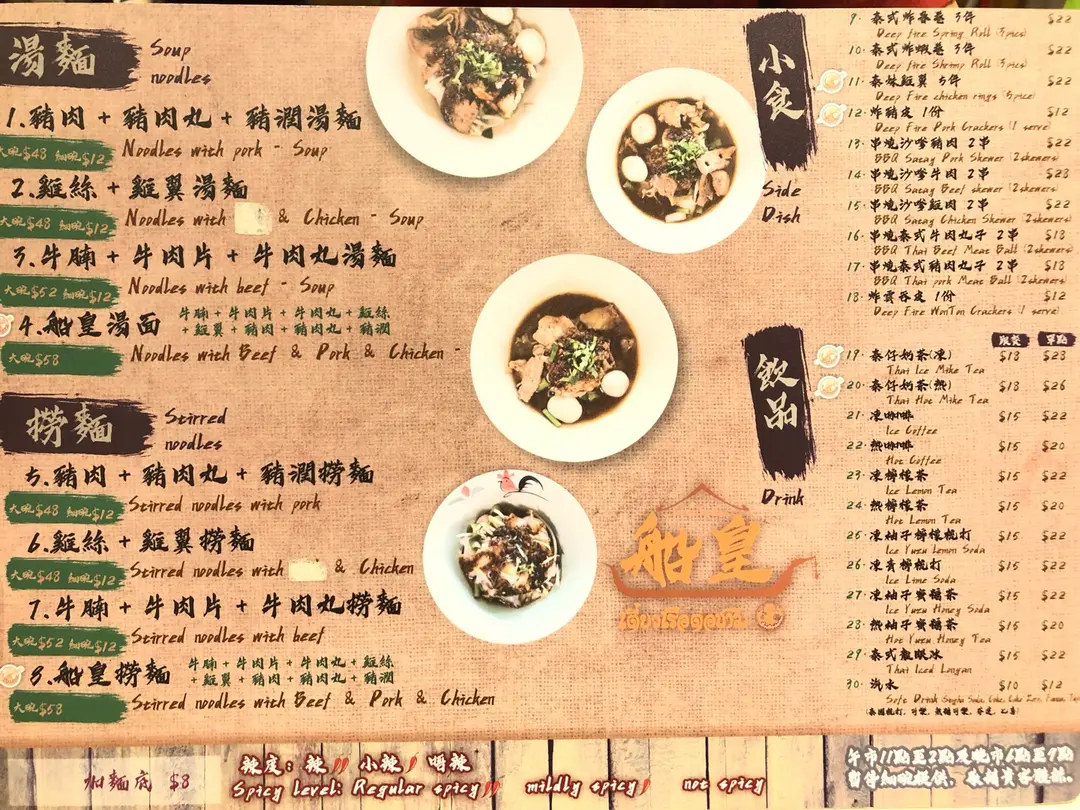 湯麵
Soup
noodles
1.豬肉 + 豬肉丸 + 豬潤湯麵
大碗$48 細碗$12
Noodles with pork - Soup
2.雞絲 + 雞翼湯麵
大碗$48 細碗$12
Noodles with & Chicken - Soup
3.牛腩 + 牛肉片 + 牛肉丸湯麵
大碗$52 細碗$12
Noodles with beef - Soup
4.船皇湯面
牛腩 + 牛肉片 + 牛肉丸 + 雞絲
+ 雞翼 + 豬肉 + 豬肉丸 + 豬潤
大碗$58
Noodles with Beef & Pork & Chicken -
撈麵
Stirred
noodles
5.豬肉 + 豬肉丸 + 豬潤撈麵
大碗$48 細碗$12
Stirred noodles with pork
6.雞絲 + 雞翼撈麵
大碗$48 細碗$12
Stirred noodles with & Chicken
7.牛腩 + 牛肉片 + 牛肉丸撈麵
大碗$52 細碗$12
Stirred noodles with beef
8.船皇撈麵
牛腩 + 牛肉片 + 牛肉丸 + 雞絲
+ 雞翼 + 豬肉 + 豬肉丸 + 豬潤
大碗$58
Stirred noodles with Beef & Pork & Chicken
小食
Side
Dish
9. 泰式炸春卷 3件 $22
Deep fire Spring Roll (3pics)
10. 泰式炸蝦卷 3件 $22
Deep fire Shrimp Roll (3pics)
11. 泰妹雞翼 5件 $22
Deep Fire chicken rings (5pice)
12. 炸豬皮 1份 $12
Deep Fire Pork Crackers (1 serve)
13. 串燒沙嗲豬肉 2串 $22
BBQ Satay Pork Skewer (2skewers)
14. 串燒沙嗲牛肉 2串 $28
BBQ Satay Beef skewer (2skewers)
15. 串燒沙嗲雞肉 2串 $22
BBQ Satay Chicken Skewer (2skewers)
16. 串燒泰式牛肉丸子 2串 $18
BBQ Thai Beef Meat Ball (2skewers)
17. 串燒泰式豬肉丸子 2串 $18
BBQ Thai pork Meat Ball (2skewers)
18. 炸雲吞皮 1份 $12
Deep Fire WonTon Crackers (1 serve)
飲品
Drink
跟餐 單點
19. 泰仔奶茶(凍) $18 $28
Thai Ice Mike Tea
20. 泰仔奶茶(熱) $18 $26
Thai Hot Mike Tea
21. 凍咖啡 $15 $22
Ice Coffee
22. 熱咖啡 $15 $20
Hot Coffee
23. 凍檸檬茶 $15 $22
Ice Lemon Tea
24. 熱檸檬茶 $15 $20
Hot Lemon Tea
25. 凍柚子檸檬梳打 $15 $22
Ice Yuzu Lemon Soda
26. 凍青檸梳打 $15 $22
Ice Lime Soda
27. 凍柚子蜜糖茶 $15 $22
Ice Yuzu Honey Soda
28. 熱柚子蜜糖茶 $15 $20
Hot Yuzu Honey Tea
29. 泰式龍眼冰 $15 $22
Thai Iced Longan
30. 汽水 $10 $12
Soft Drink
船皇
加麵底 $8
辣度: 辣 小辣 唔辣
Spicy Level: Regular spicy mildly spicy not spicy
午市11點至2點及晚市6點至9點
暫停細碗提供